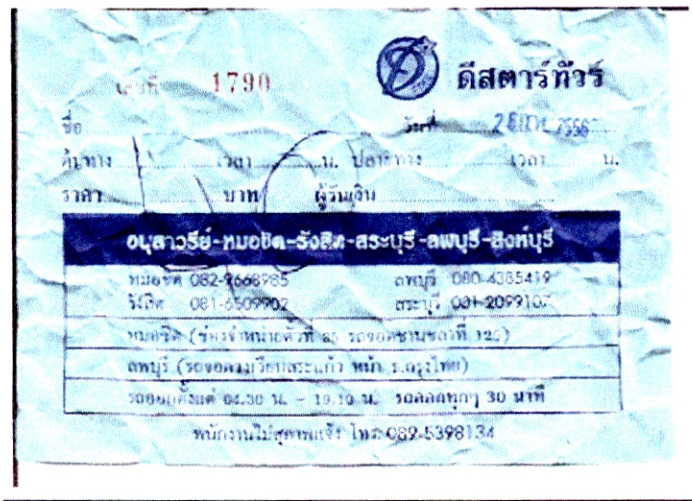 เลขที่ 1790 ดีสตาร์ทัวร์
ชื่อ วันที่ 2556
ต้นทาง เวลา น. ปลายทาง เวลา น.
ราคา บาท ผู้รับเงิน
อนุสาวรีย์-หมอชิต-รังสิต-สระบุรี-ลพบุรี-สิงห์บุรี
หมอชิต 082-9668985 ลพบุรี 080-4385419
รังสิต 081-6509902 สระบุรี
หมอชิต (ช่องจำหน่ายตั๋วที่ รถจอดชานชลาที่
ลพบุรี (รถจอดวงเวียนสระแก้ว หน้า ธ.กรุงไทย)
รถออกตั้งแต่ 04.30 น. - 19.10 น. รถออกทุกๆ 30 นาที
พนักงานไม่สุภาพแจ้ง โทร.089-5398134